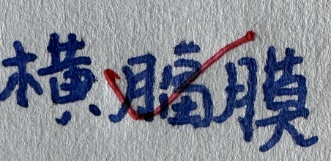 横膈膜